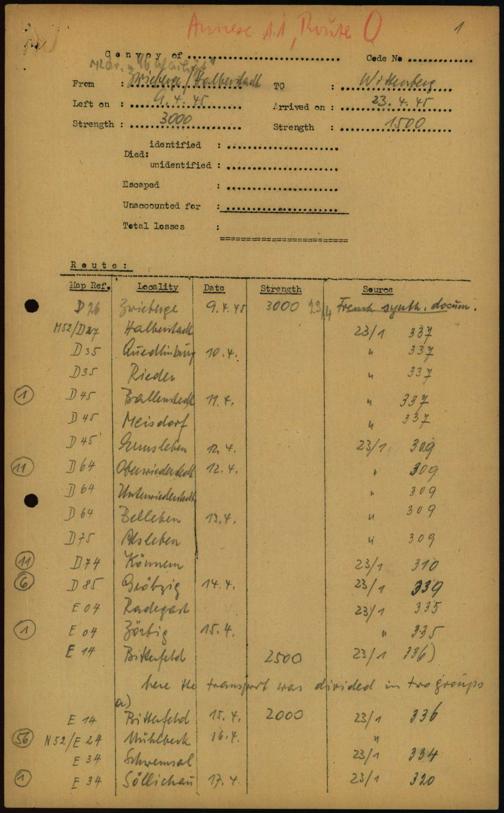 Annexe 11, Route O
1
Convoy of
Code No
From : Zwieberge/Halberstadt TO : Wittenberg
Left on : 9.4.45 Arrived on : 23.4.45
Strength : 3000 Strength : 1500
identified :
Died:
unidentified :
Escaped :
Unaccounted for :
Total losses :
Route:
Map Ref. Locality Date Strength Source
D 26 Zwieberge 9.4.45 3000 French synth. docum.
M52/D27 Halberstadt 23/1 337
D 35 Quedlinburg 10.4. " 337
D35 Rieder " 337
1 D 45 Ballenstedt 11.4. " 337
D 45 Meisdorf " 337
D 45 Ermsleben 12.4. 23/1 309
11 D 64 Oberwiederstedt 12.4. " 309
D 64 Unterwiederstedt " 309
D 64 Belleben 13.4. " 309
D 75 Alsleben " 309
11 D 74 Könnern 23/1 310
6 D 85 Gröbzig 14.4. 23/1 339
E 04 Radegast 23/1 335
1 E 04 Zörbig 15.4. " 335
E 14 Bitterfeld 2500 23/1 336)
here the transport was divided in two groups
a)
E 14 Bitterfeld 15.4. 2000 23/1 336
56 N52/E 24 Mühlbeck 16.4. "
E 34 Schwemsal 23/1 334
1 E 34 Söllichau 17.4. 23/1 320